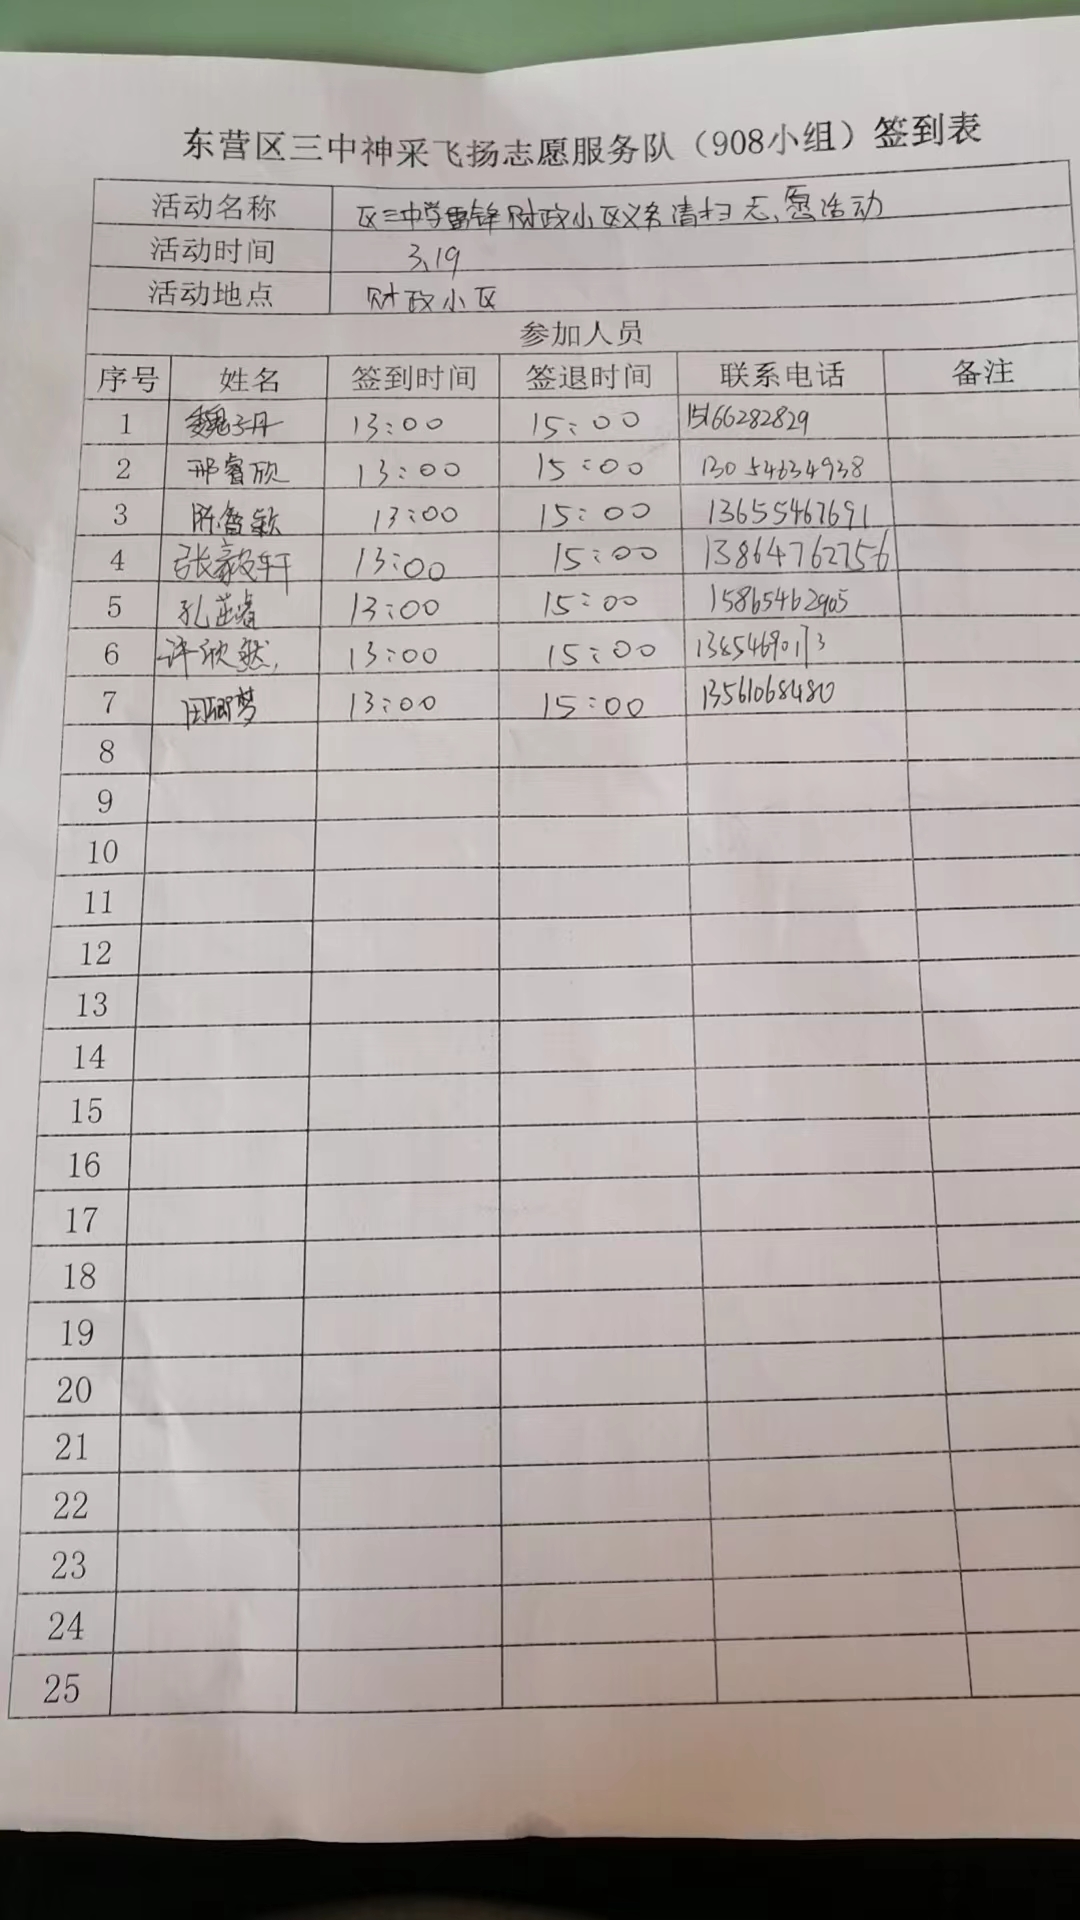 东营区三中神采飞扬志愿服务队（908小组）签到表
活动名称 区三中学雷锋财政小区义务清扫志愿活动
活动时间 3.19
活动地点 财政小区
参加人员
序号 姓名 签到时间 签退时间 联系电话 备注
1 魏子丹 13:00 15:00 15166282829
2 邢睿欣 13:00 15:00 13054634938
3 陈鲁颖 13:00 15:00 13655467691
4 张毅轩 13:00 15:00 13864762756
5 孔芷睿 13:00 15:00 15865462905
6 许欣然 13:00 15:00 13854690173
7 田卿梦 13:00 15:00 13561068480
8
9
10
11
12
13
14
15
16
17
18
19
20
21
22
23
24
25